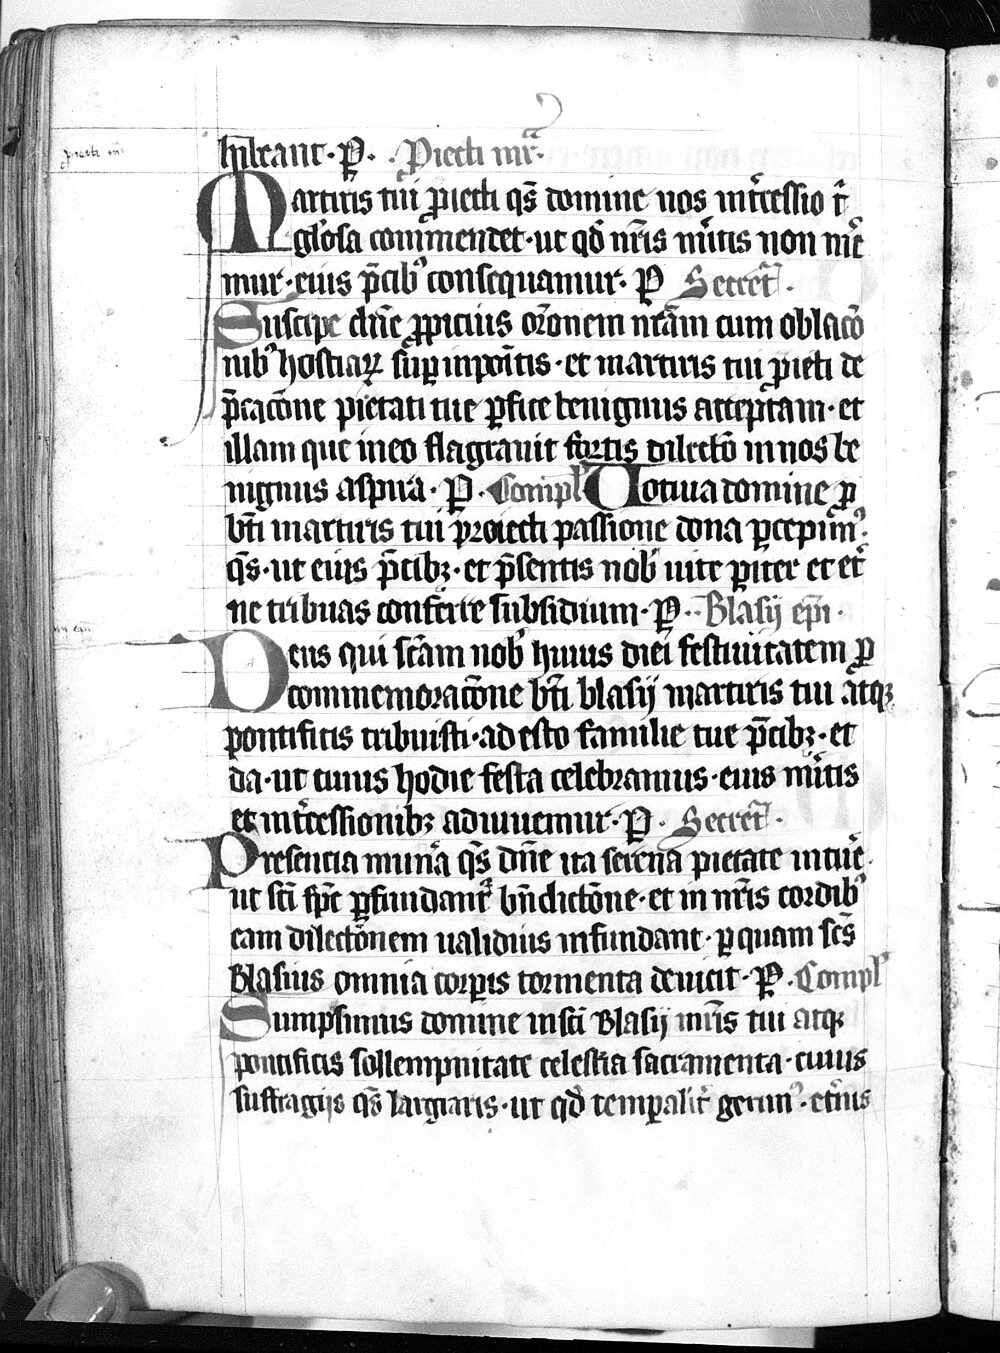 hileant · P̱ · Piecti mr̄
pietti m̄
Martiris tui p̄iecti qs̄ domine nos int̄cessio t̄
gl'osa commendet · ut qd̄ nr̄is m̄itis non me
mur · eius p̄cibꝰ consequamur · P̱ Secret̄ ·
Suscipe dn̄e ꝓpicius or̄onem nr̄am cum oblacō
nibꝰ hostiaꝝ suꝑ inpōitis · et martiris tui p̄ieti de
p̄cacōne pietati tue ꝑfice benignus acceptam · et
illam que in eo flagrauit fortis dilectō in nos be
nignus aspira · P̱ · Compl' Uotiua domine ꝑ
bt̄i martiris tui proiecti passione dona ꝑcepimꝰ ·
qs̄ · ut eius p̄cibꝫ · et p̄sentis nob' uite ꝑiter et et̄
ne tribuas conferre subsidium · P̱ · Blasij ep̄i ·
Deus qui sc̄am nob' huius diei festiuitatem ꝑ
commemoracōne bt̄i blasij martiris tui atqꝫ
pontificis tribuisti · ad esto familie tue p̄cibꝫ · et
da · ut cuius hodie festa celebramus · eius m̄itis
et int̄cessionibꝫ adiuuemur · P̱ · Secret̄ ·
Presencia muna qs̄ dn̄e ita serena pietate intue ·
ut sc̄i sp̄c ꝑfundant̄ bn̄dictōne · et in nr̄is cordibꝰ
eam dilectōnem ualidius infundant · ꝑ quam sc̄s
Blasius omnia corꝑis tormenta deuicit · P̱ · Compl'
Sumpsimus domine in sc̄i Blasij mr̄is tui atqꝫ
pontificis sollempnitate celestia sacramenta · cuius
suffragijs qs̄ largiaris · ut qd̄ temꝑalit̄ gerimꝰ · et̄nis